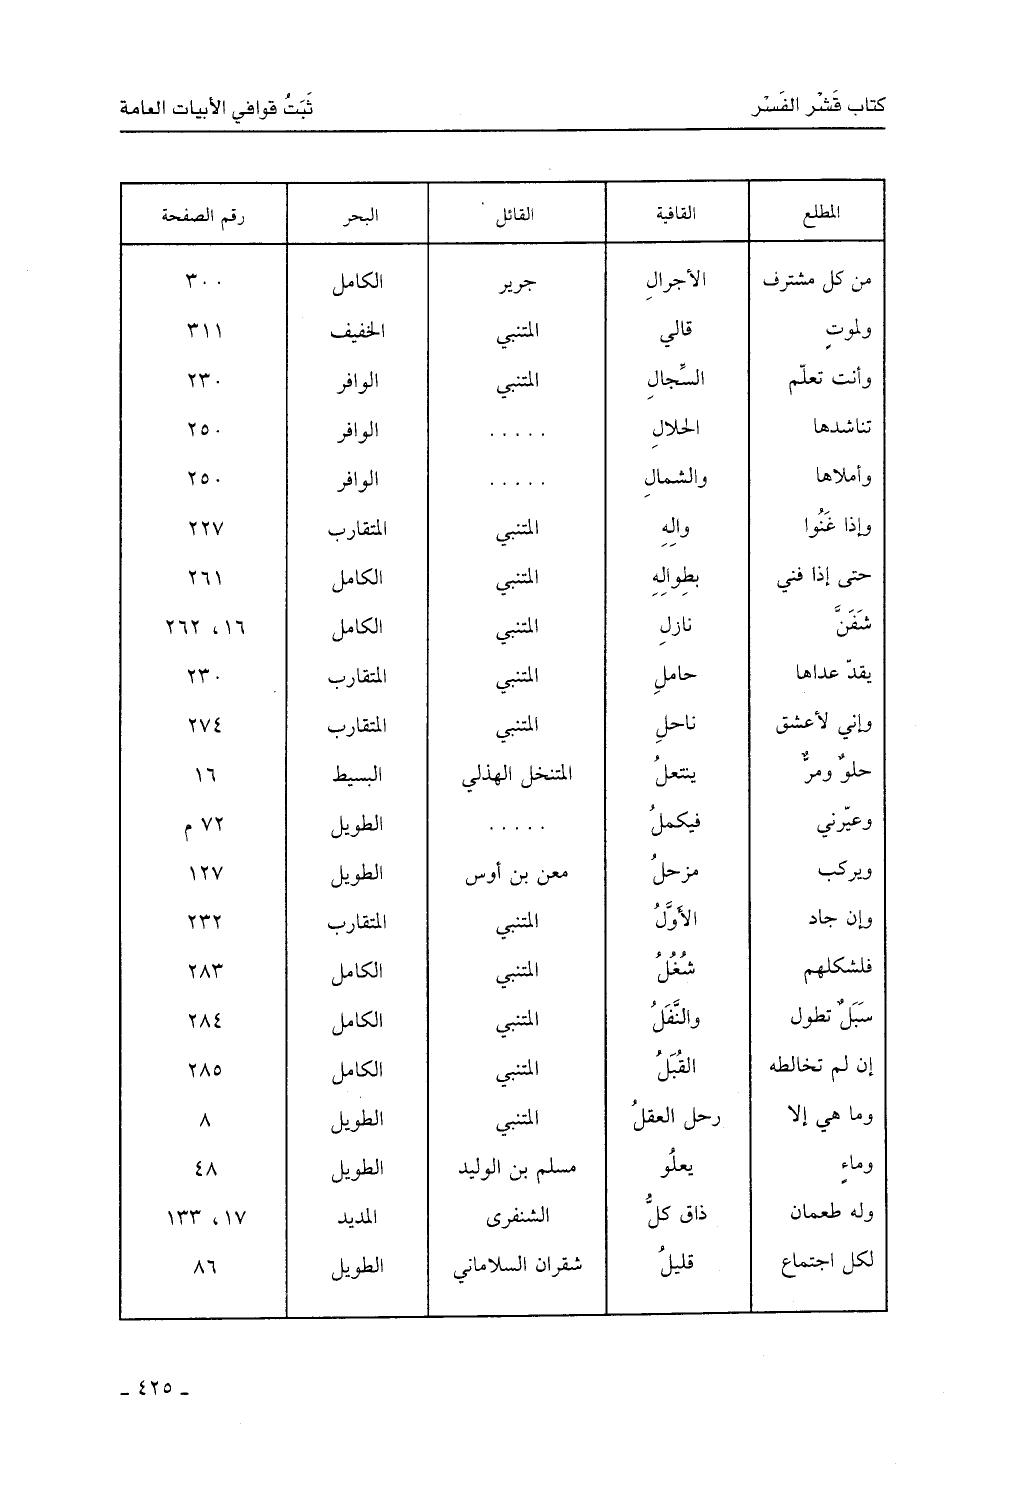 كتاب قَشْر الفَسْر ثَبَتُ قوافي الأبيات العامة
المطلع القافية القائل البحر رقم الصفحة
من كل مشترف الأجرالِ جرير الكامل ٣٠٠
ولموتٍ قالي المتنبي الخفيف ٣١١
وأنت تعلّم السِّجالِ المتنبي الوافر ٢٣٠
تناشدها الحلالِ ..... الوافر ٢٥٠
وأملاها والشمالِ ..... الوافر ٢٥٠
وإذا غَنُوا والِهِ المتنبي المتقارب ٢٢٧
حتى إذا فني بطِوالِهِ المتنبي الكامل ٢٦١
شَفَنَّ نازلِ المتنبي الكامل ١٦، ٢٦٢
يقدّ عداها حاملِ المتنبي المتقارب ٢٣٠
وإني لأعشق ناحلِ المتنبي المتقارب ٢٧٤
حلوٌ ومرٌّ ينتعلُ المتنخل الهذلي البسيط ١٦
وعيّرني فيكملُ ..... الطويل ٧٢ م
ويركب مزحلُ معن بن أوس الطويل ١٢٧
وإن جاد الأَوَّلُ المتنبي المتقارب ٢٣٢
فلشكلهم شُغُلُ المتنبي الكامل ٢٨٣
سَبَلٌ تطول والنَّفَلُ المتنبي الكامل ٢٨٤
إن لم تخالطه القُبَلُ المتنبي الكامل ٢٨٥
وما هي إلا رحل العقلُ المتنبي الطويل ٨
وماءٍ يعلُو مسلم بن الوليد الطويل ٤٨
وله طعمان ذاق كلُّ الشنفرى المديد ١٧، ١٣٣
لكل اجتماع قليلُ شقران السلاماني الطويل ٨٦
ـ ٤٢٥ ـ